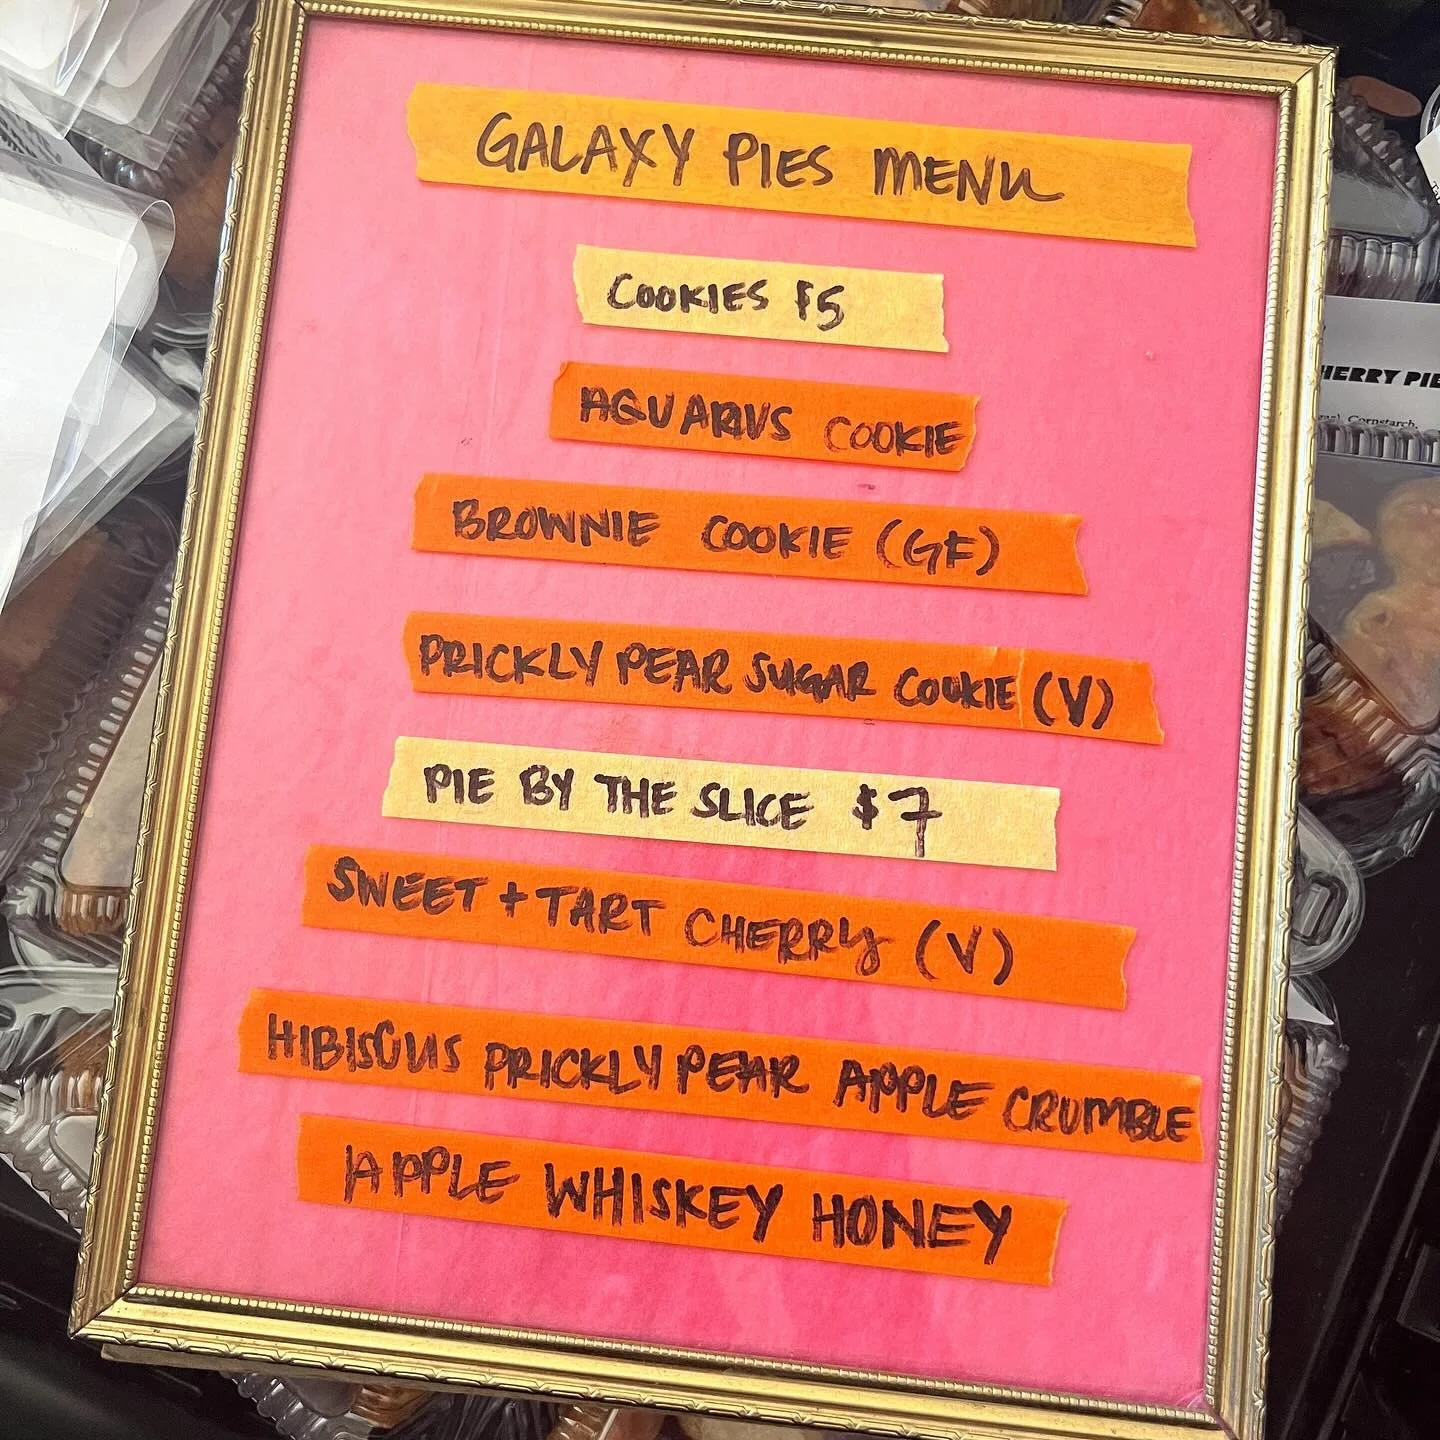 GALAXY PIES MENU
COOKIES $5
AQUARIUS COOKIE
BROWNIE COOKIE (GF)
PRICKLY PEAR SUGAR COOKIE (V)
PIE BY THE SLICE $7
SWEET + TART CHERRY (V)
HIBISCUS PRICKLY PEAR APPLE CRUMBLE
APPLE WHISKEY HONEY
HERRY PIE
Cornstarch,